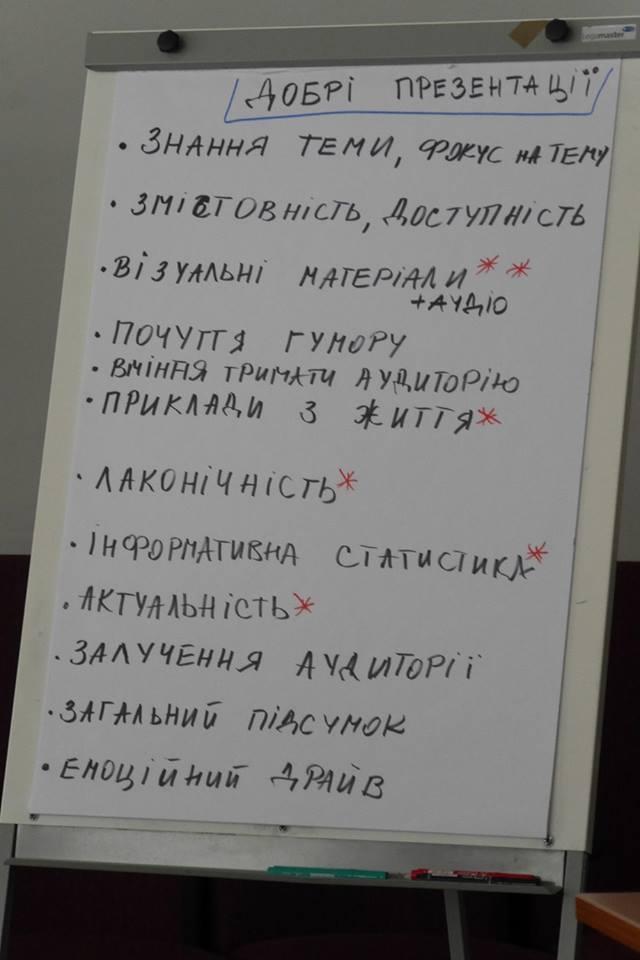 ДОБРІ ПРЕЗЕНТАЦІЇ
• ЗНАННЯ ТЕМИ, ФОКУС НА ТЕМУ
• ЗМІСТОВНІСТЬ, ДОСТУПНІСТЬ
• ВІЗУАЛЬНІ МАТЕРІАЛИ * *
+АУДІО
• ПОЧУТТЯ ГУМОРУ
• ВМІННЯ ТРИМАТИ АУДИТОРІЮ
• ПРИКЛАДИ З ЖИТТЯ *
• ЛАКОНІЧНІСТЬ *
• ІНФОРМАТИВНА СТАТИСТИКА *
• АКТУАЛЬНІСТЬ *
• ЗАЛУЧЕННЯ АУДИТОРІЇ
• ЗАГАЛЬНИЙ ПІДСУМОК
• ЕМОЦІЙНИЙ ДРАЙВ
Legamaster